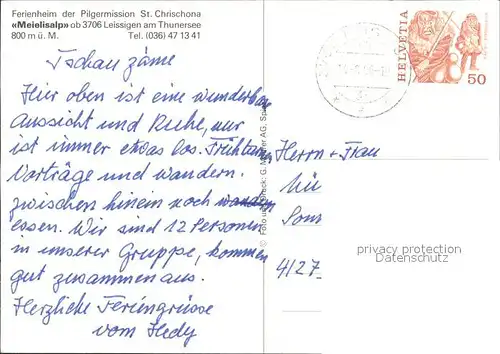 Ferienheim der Pilgermission St. Chrischona
«Meielisalp» ob 3706 Leissigen am Thunersee
800 m ü. M. Tel. (036) 47 13 41
HELVETIA
50
Tschau zäme
Hier oben ist eine wunderbare
Aussicht und Ruhe, nur
ist immer etwas los. Frühturnen,
Vorträge und wandern.
zwischen hinein noch
essen. Wir sind 12 Personen
in unserer Gruppe, kommen
gut zusammen aus.
Herzliche Feriengrüsse
vom Hedy
© Foto und Druck: G.
AG,
Herrn + Frau
4127
privacy protection
Datenschutz